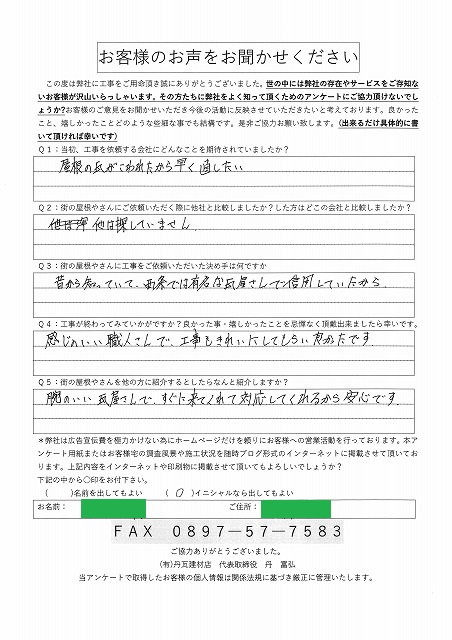 お客様のお声をお聞かせください
この度は弊社に工事をご用命頂き誠にありがとうございました。世の中には弊社の存在やサービスをご存知ないお客様が沢山いらっしゃいます。その方たちに弊社をよく知って頂くためのアンケートにご協力頂けないでしょうか?お客様のご意見をお聞かせいただき今後の活動に反映させていただきたいと考えております。良かったこと、嬉しかったことどのような些細な事でも結構です。是非ご協力お願い致します。(出来るだけ具体的に書いて頂ければ幸いです)
Q1:当初、工事を依頼する会社にどんなことを期待されていましたか?
屋根の瓦がこわれたから早く直したい
Q2:街の屋根やさんにご依頼いただく際に他社と比較しましたか?した方はどこの会社と比較しましたか?
他は探していません
Q3:街の屋根やさんに工事をご依頼いただいた決め手は何ですか
昔から知っていて、西条では有名な瓦屋さんで信用していたから
Q4:工事が終わってみていかがですか?良かった事・嬉しかったことを忌憚なく頂戴出来ましたら幸いです。
感じのいい職人さんで、工事もきれいにしてもらい良かったです
Q5:街の屋根やさんを他の方に紹介するとしたらなんと紹介しますか?
腕のいい瓦屋さんで、すぐに来てくれて対応してくれるから安心です
*弊社は広告宣伝費を極力かけない為にホームページだけを頼りにお客様への営業活動を行っております。本アンケート用紙またはお客様宅の調査風景や施工状況を随時ブログ形式のインターネットに掲載させて頂いております。上記内容をインターネットや印刷物に掲載させて頂いてもよろしいでしょうか?
下記の中から〇印をお付下さい。
(　)名前を出してもよい　(〇)イニシャルなら出してもよい
お名前:　ご住所:
FAX 0897-57-7583
ご協力ありがとうございました。
(有)丹瓦建材店　代表取締役　丹　富弘
当アンケートで取得したお客様の個人情報は関係法規に基づき厳正に管理いたします。